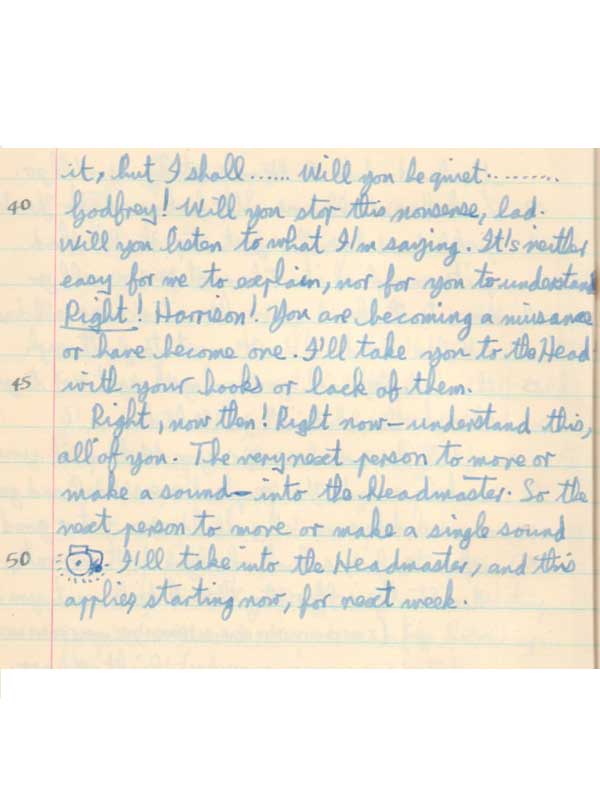 it, but I shall...... Will you be quiet..........
40 Godfrey! Will you stop this nonsense, lad.
Will you listen to what I'm saying. It's neither
easy for me to explain, nor for you to understand
Right! Harrison! You are becoming a niusance
or have become one. I'll take you to the Head
45 with your books or lack of them.
Right, now then! Right now—understand this,
all of you. The very next person to move or
make a sound—into the Headmaster. So the
next person to move or make a single sound
50 . I'll take into the Headmaster, and this
applies starting now, for next week.